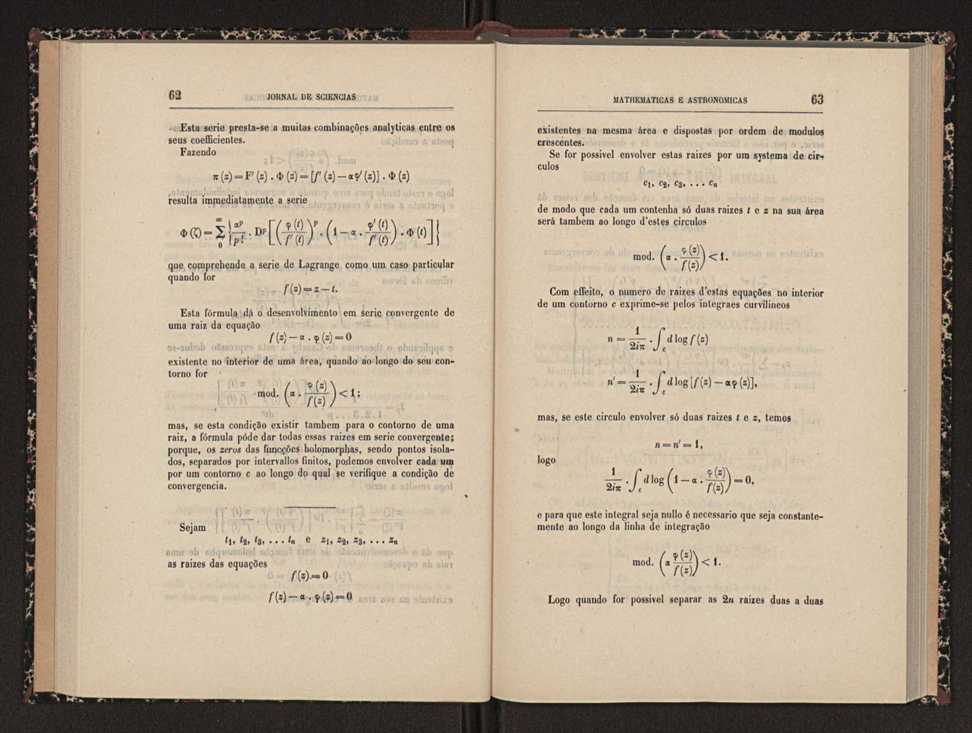 62 JORNAL DE SCIENCIAS
Esta serie presta-se a muitas combinações analyticas entre os
seus coefficientes.
Fazendo
π (z) = F' (z) . Φ (z) = [f' (z) — αφ' (z)] . Φ (z)
resulta immediatamente a serie
Φ (ζ) = ∑_0^∞ { α^p / p! . D^p [ ( φ (t) / f' (t) )^p . ( 1 — α . φ' (t) / f' (t) ) . Φ (t) ] }
que comprehende a serie de Lagrange como um caso particular
quando for
f (z) = z — t.
Esta fórmula dá o desenvolvimento em serie convergente de
uma raiz da equação
f (z) — α . φ (z) = 0
existente no interior de uma área, quando ao longo do seu con-
torno for
mod. ( α . φ (z) / f (z) ) < 1;
mas, se esta condição existir tambem para o contorno de uma
raiz, a fórmula póde dar todas essas raizes em serie convergente;
porque, os zeros das funcções holomorphas, sendo pontos isola-
dos, separados por intervallos finitos, podemos envolver cada um
por um contorno c ao longo do qual se verifique a condição de
convergencia.
Sejam
t₁, t₂, t₃, . . . tₙ e z₁, z₂, z₃, . . . zₙ
as raizes das equações
f (z) = 0
f (z) — α . φ (z) = 0
MATHEMATICAS E ASTRONOMICAS 63
existentes na mesma área e dispostas por ordem de modulos
crescentes.
Se for possivel envolver estas raizes por um systema de cir-
culos
c₁, c₂, c₃, . . . cₙ
de modo que cada um contenha só duas raizes t e z na sua área
será tambem ao longo d'estes circulos
mod. ( α . φ (z) / f (z) ) < 1.
Com effeito, o numero de raizes d'estas equações no interior
de um contorno c exprime-se pelos integraes curvilineos
n = 1 / 2iπ . ∫_c d log f (z)
n' = 1 / 2iπ . ∫_c d log [f (z) — αφ (z)],
mas, se este circulo envolver só duas raizes t e z, temos
n = n' = 1,
logo
1 / 2iπ . ∫_c d log ( 1 — α . φ (z) / f (z) ) = 0,
e para que este integral seja nullo é necessario que seja constante-
mente ao longo da linha de integração
mod. ( α φ (z) / f (z) ) < 1.
Logo quando for possivel separar as 2n raizes duas a duas